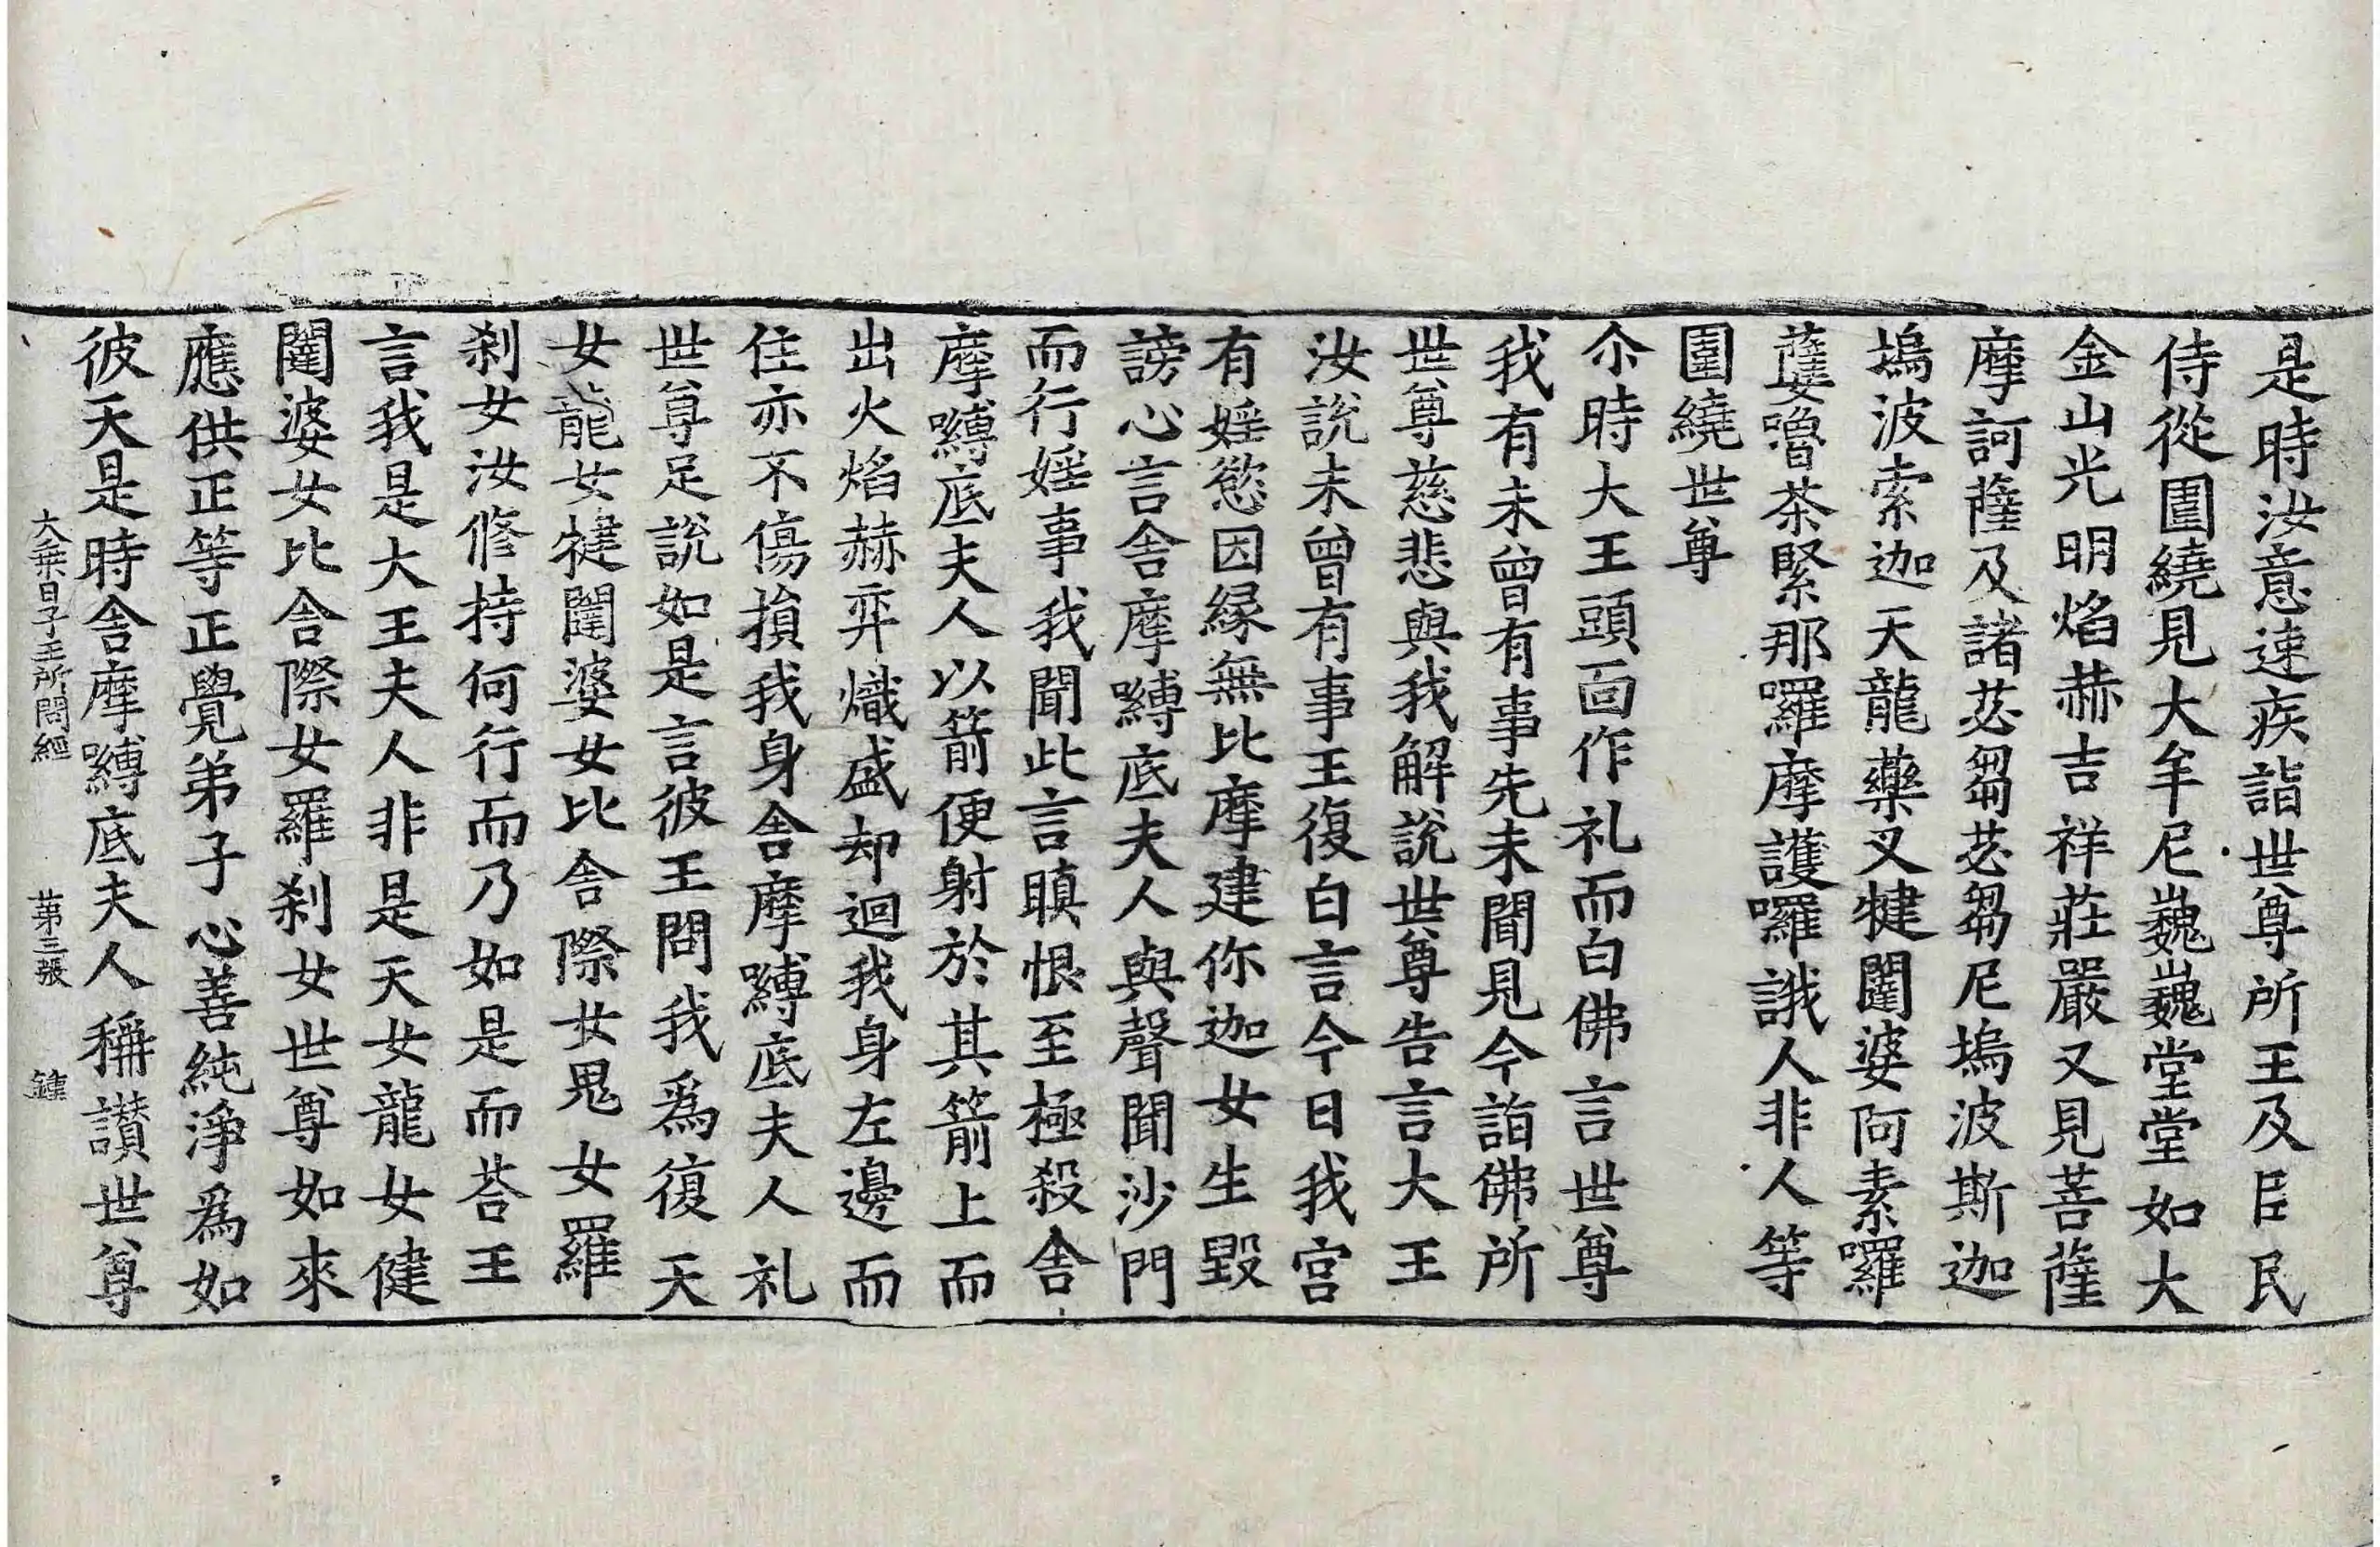 是時汝意速疾詣世尊所王及臣民
侍從圍繞見大牟尼巍巍堂堂如大
金山光明焰赫吉祥莊嚴又見菩薩
摩訶薩及諸苾芻苾芻尼塢波斯迦
塢波索迦天龍藥叉犍闥婆阿素囉
蘖嚕荼緊那囉摩護囉誐人非人等
圍繞世尊
尒時大王頭面作礼而白佛言世尊
我有未曾有事先未聞見今詣佛所
世尊慈悲與我解說世尊告言大王
汝說未曾有事王復白言今日我宮
有婬慾因緣無比摩建你迦女生毀
謗心言舍摩嚩底夫人與聲聞沙門
而行婬事我聞此言瞋恨至極殺舍
摩嚩底夫人以箭便射於其箭上而
出火焰赫弈熾盛却迴我身左邊而
住亦不傷損我身舍摩嚩底夫人礼
世尊足說如是言彼王問我為復天
女龍女犍闥婆女比舍際女鬼女羅
刹女汝修持何行而乃如是而荅王
言我是大王夫人非是天女龍女健
闥婆女比舍際女羅刹女世尊如來
應供正等正覺弟子心善純淨為如
彼天是時舍摩嚩底夫人稱讃世尊
大乘日子王所問經 第三張